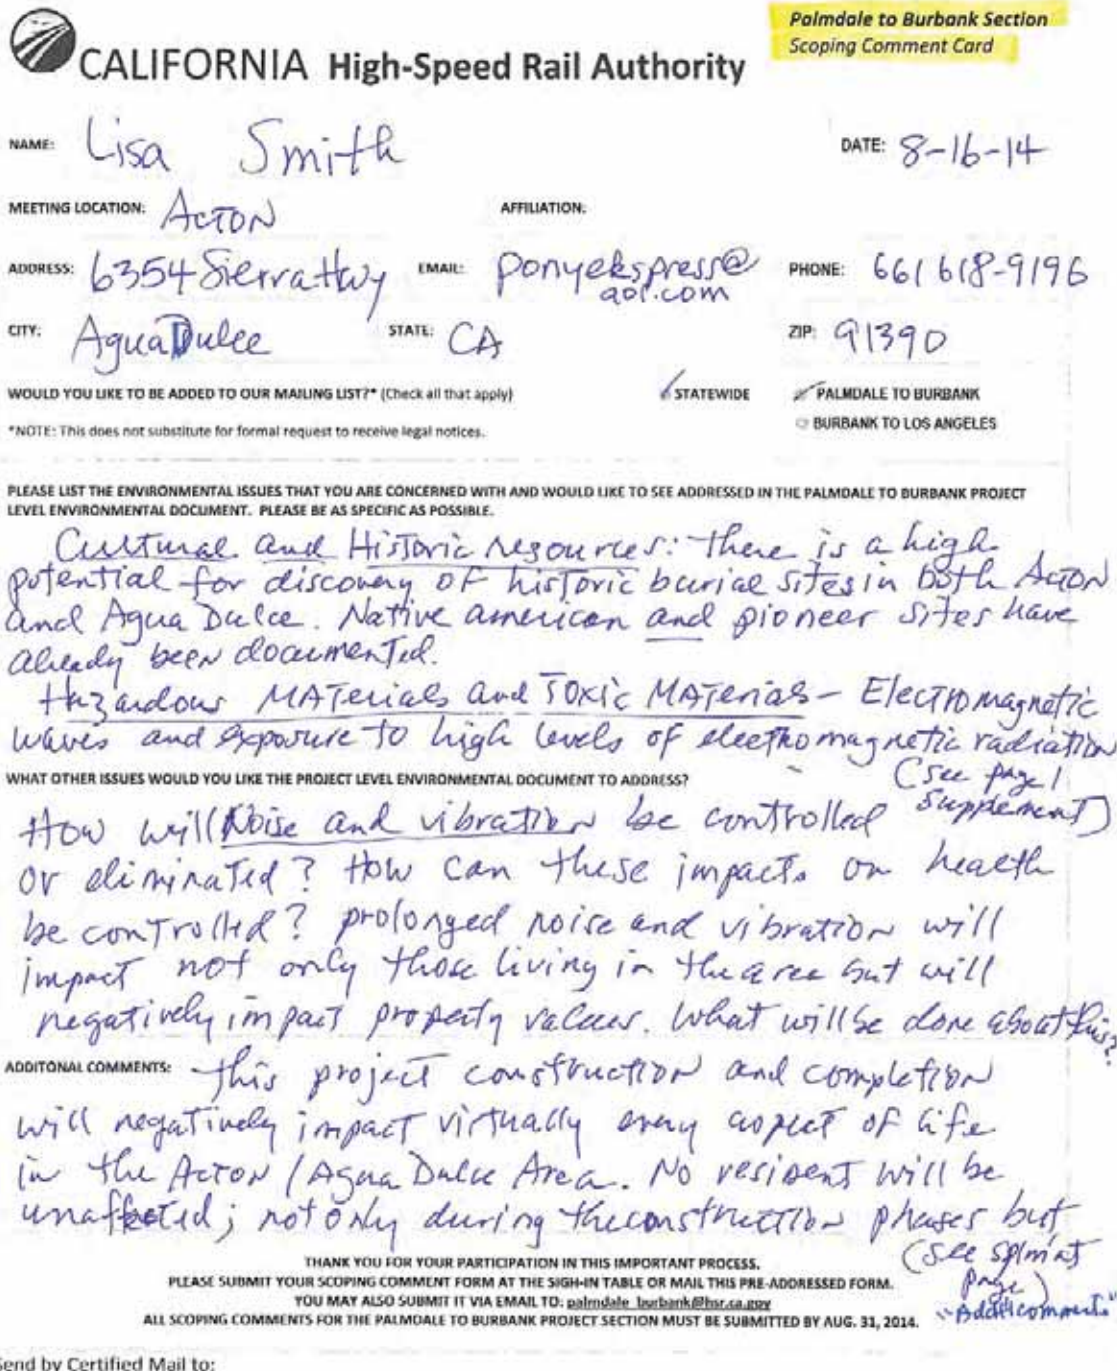 Palmdale to Burbank Section
Scoping Comment Card
CALIFORNIA High-Speed Rail Authority
NAME: Lisa Smith DATE: 8-16-14
MEETING LOCATION: ACTON AFFILIATION:
ADDRESS: 6354 Sierra Hwy EMAIL: ponyekspress@ PHONE: 661 618-9196
aol.com
CITY: Agua Dulce STATE: CA ZIP: 91390
WOULD YOU LIKE TO BE ADDED TO OUR MAILING LIST?* (Check all that apply) STATEWIDE PALMDALE TO BURBANK
*NOTE: This does not substitute for formal request to receive legal notices. BURBANK TO LOS ANGELES
PLEASE LIST THE ENVIRONMENTAL ISSUES THAT YOU ARE CONCERNED WITH AND WOULD LIKE TO SEE ADDRESSED IN THE PALMDALE TO BURBANK PROJECT
LEVEL ENVIRONMENTAL DOCUMENT. PLEASE BE AS SPECIFIC AS POSSIBLE.
Cultural and Historic resources: there is a high
potential for discovery of historic burial sites in both Acton
and Agua Dulce. Native american and pioneer sites have
already been documented.
Hazardous MATerials and Toxic MATerials - Electromagnetic
waves and exposure to high levels of electromagnetic radiation
(see page 1
supplement)
WHAT OTHER ISSUES WOULD YOU LIKE THE PROJECT LEVEL ENVIRONMENTAL DOCUMENT TO ADDRESS?
How will Noise and vibration be controlled
or eliminated? How can these impacts on health
be controlled? prolonged noise and vibration will
impact not only those living in the area but will
negatively impact property values. What will be done about this?
ADDITONAL COMMENTS: this project construction and completion
will negatively impact virtually every aspect of life
in the Acton / Agua Dulce Area. No resident will be
unaffected; not only during the construction phases but
(see splmnt
page)
"Addtl comments"
THANK YOU FOR YOUR PARTICIPATION IN THIS IMPORTANT PROCESS.
PLEASE SUBMIT YOUR SCOPING COMMENT FORM AT THE SIGH-IN TABLE OR MAIL THIS PRE-ADDRESSED FORM.
YOU MAY ALSO SUBMIT IT VIA EMAIL TO: palmdale_burbank@hsr.ca.gov
ALL SCOPING COMMENTS FOR THE PALMDALE TO BURBANK PROJECT SECTION MUST BE SUBMITTED BY AUG. 31, 2014.
Send by Certified Mail to: